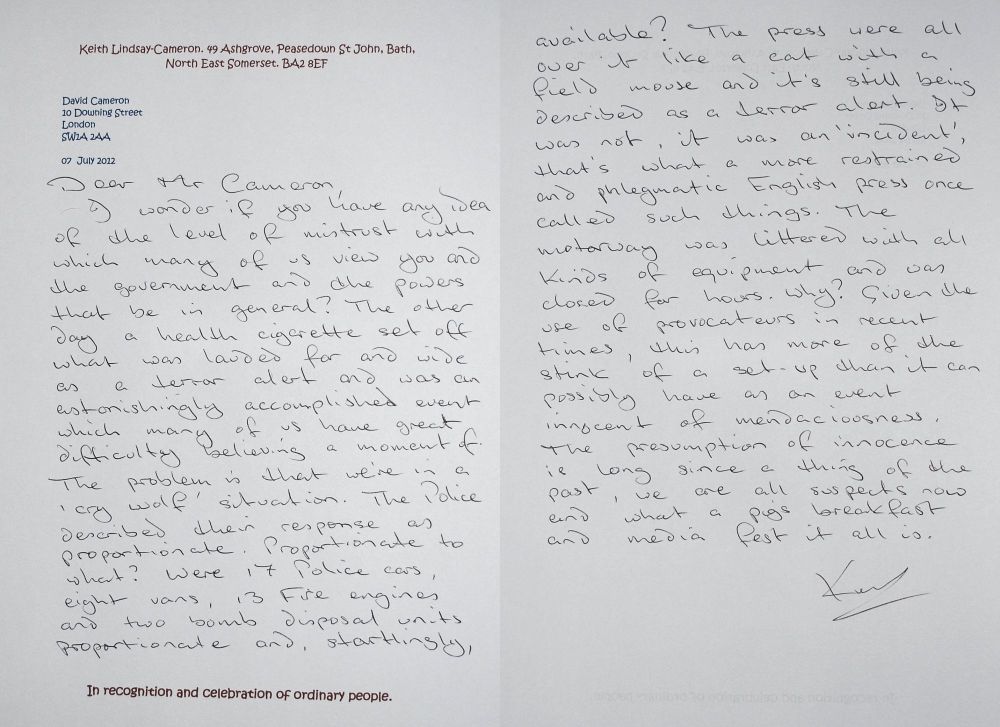 Keith Lindsay-Cameron. 49 Ashgrove, Peasedown St John, Bath,
North East Somerset. BA2 8EF
David Cameron
10 Downing Street
London
SW1A 2AA
07 July 2012
Dear Mr Cameron,
I wonder if you have any idea
of the level of mistrust with
which many of us view you and
the government and the powers
that be in general? The other
day a health cigarette set off
what was lauded far and wide
as a terror alert and was an
astonishingly accomplished event
which many of us have great
difficulty believing a moment of.
The problem is that we're in a
'cry wolf' situation. The Police
described their response as
proportionate. Proportionate to
what? Were 17 Police cars,
eight vans, 13 Fire engines
and two bomb disposal units
proportionate and, startlingly,
In recognition and celebration of ordinary people.
available? The press were all
over it like a cat with a
field mouse and it's still being
described as a terror alert. It
was not, it was an 'incident',
that's what a more restrained
and phlegmatic English press once
called such things. The
motorway was littered with all
kinds of equipment and was
closed for hours. Why? Given the
use of provocateurs in recent
times, this has more of the
stink of a set-up than it can
possibly have as an event
innocent of mendaciousness.
The presumption of innocence
is long since a thing of the
past, we are all suspects now
and what a pigs breakfast
and media fest it all is.